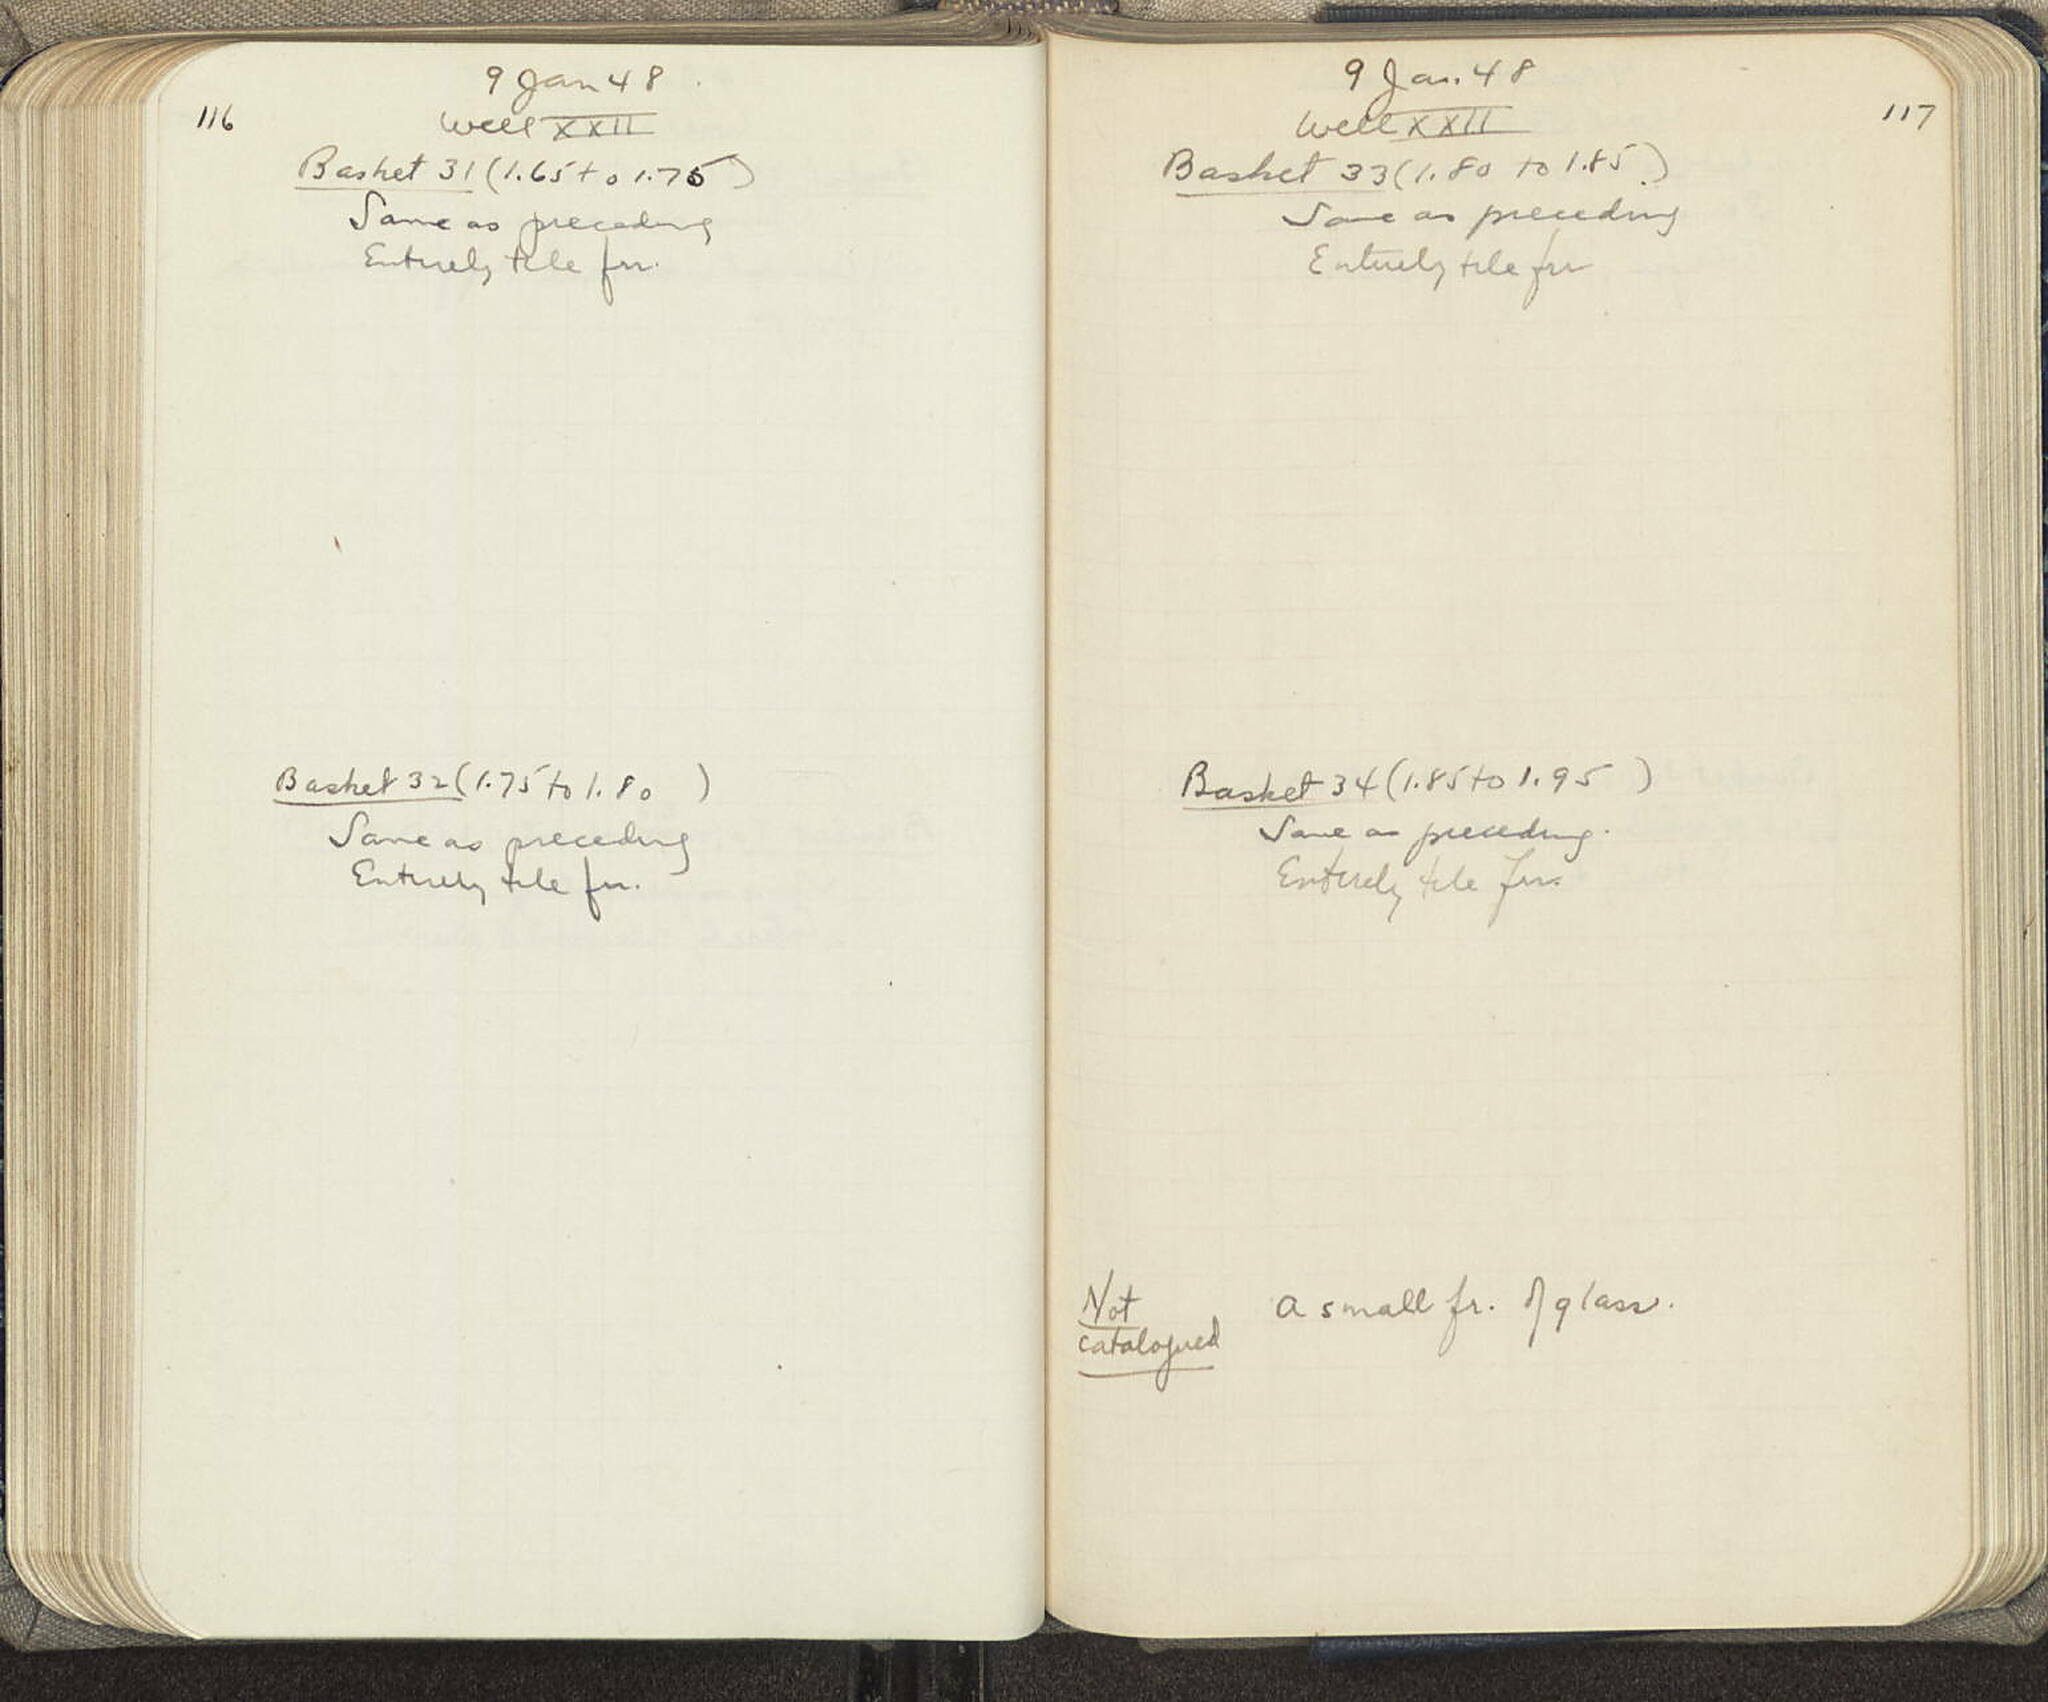 116
9 Jan 48
Well XXII
Basket 31 (1.65 to 1.75)
Same as preceding
Entirely tile frr.
Basket 32 (1.75 to 1.80 )
Same as preceding
Entirely tile frr.
9 Jan. 48
117
Well XXII
Basket 33 (1.80 to 1.85)
Same as preceding
Entirely tile frr
Basket 34 (1.85 to 1.95 )
Same as preceding.
Entirely tile frr.
Not
catalogued
A small fr. of glass.